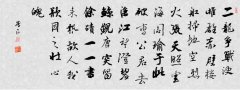 二龍争戰決
雌雄赤壁樓
船掃地空烈
火張天照雲
海周瑜于此
破曹公君去
滄江望澄碧
鯨鯢唐突留
餘跡一一書
来報故人我
欲因之壮心
魄